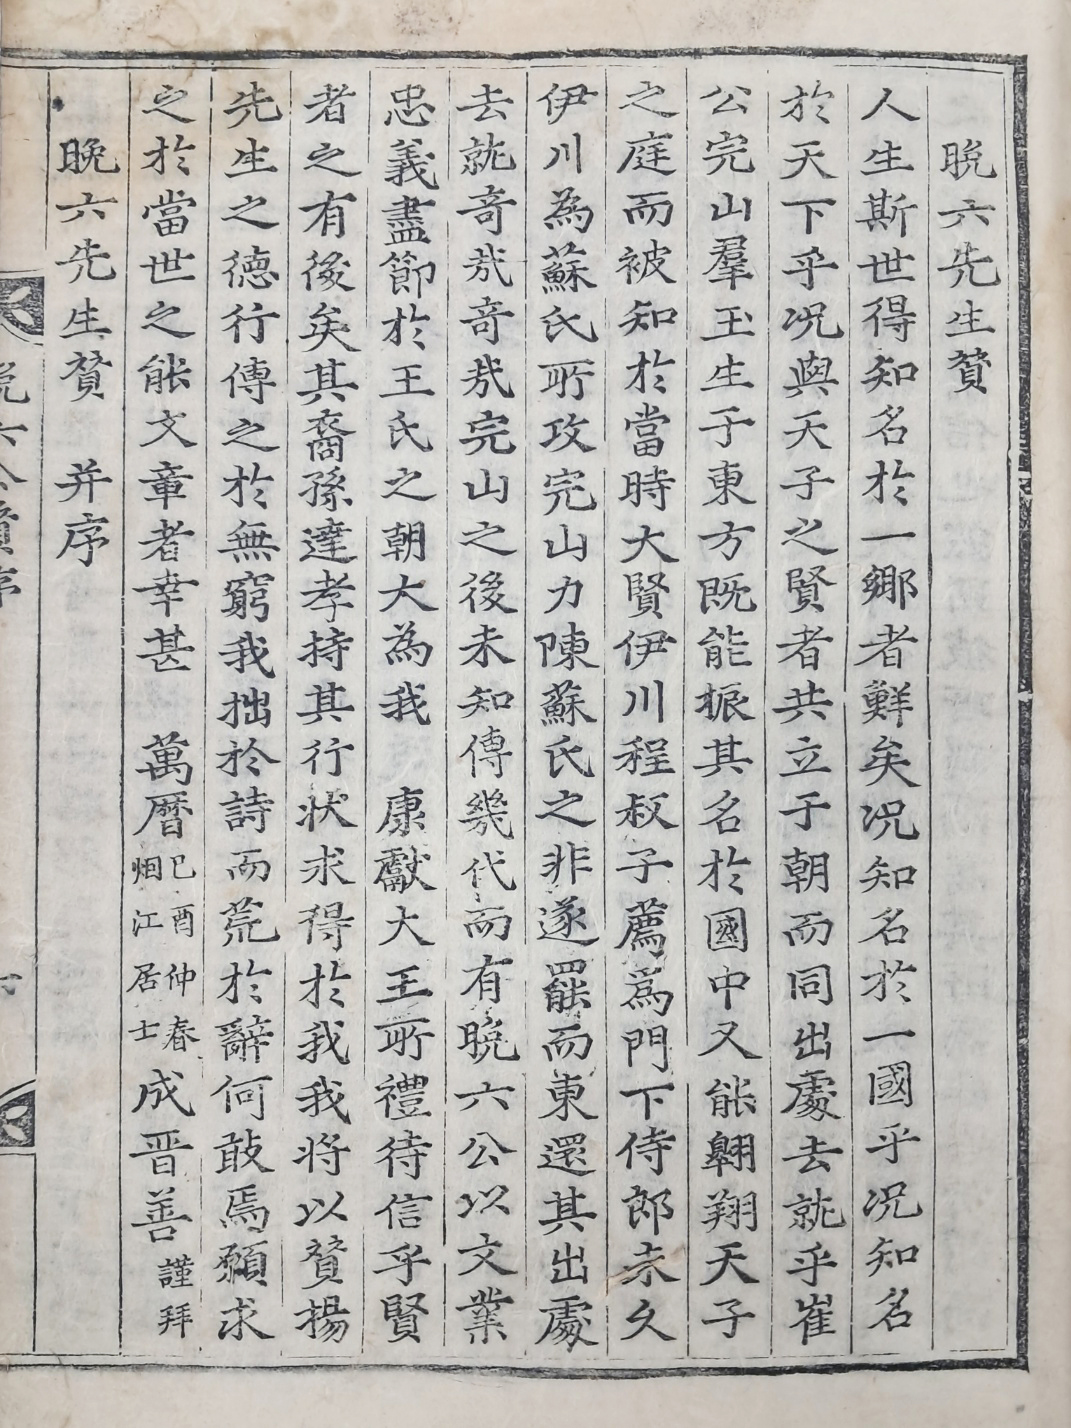 晩六先生賛
人生斯世得知名於一鄉者鮮矣况知名於一國乎况知名
於天下乎况與天子之賢者共立于朝而同出處去就乎崔
公完山羣玉生于東方既能振其名於國中又能翱翔天子
之庭而被知於當時大賢伊川程叔子薦爲門下侍郎未久
伊川為蘇氏所攻完山力陳蘇氏之非遂罷而東還其出處
去就奇㢤奇㢤完山之後未知傳幾代而有晩六公以文業
忠義盡節於王氏之朝大為我　康獻大王所禮待信乎賢
者之有後矣其裔孫達孝持其行状求得於我我將以賛揚
先生之德行傳之於無窮我拙於詩而荒於辭何敢焉願求
之於當世之能文章者幸甚　萬曆己酉仲春烟江居士成晋善謹拜
晩六先生賛　并序